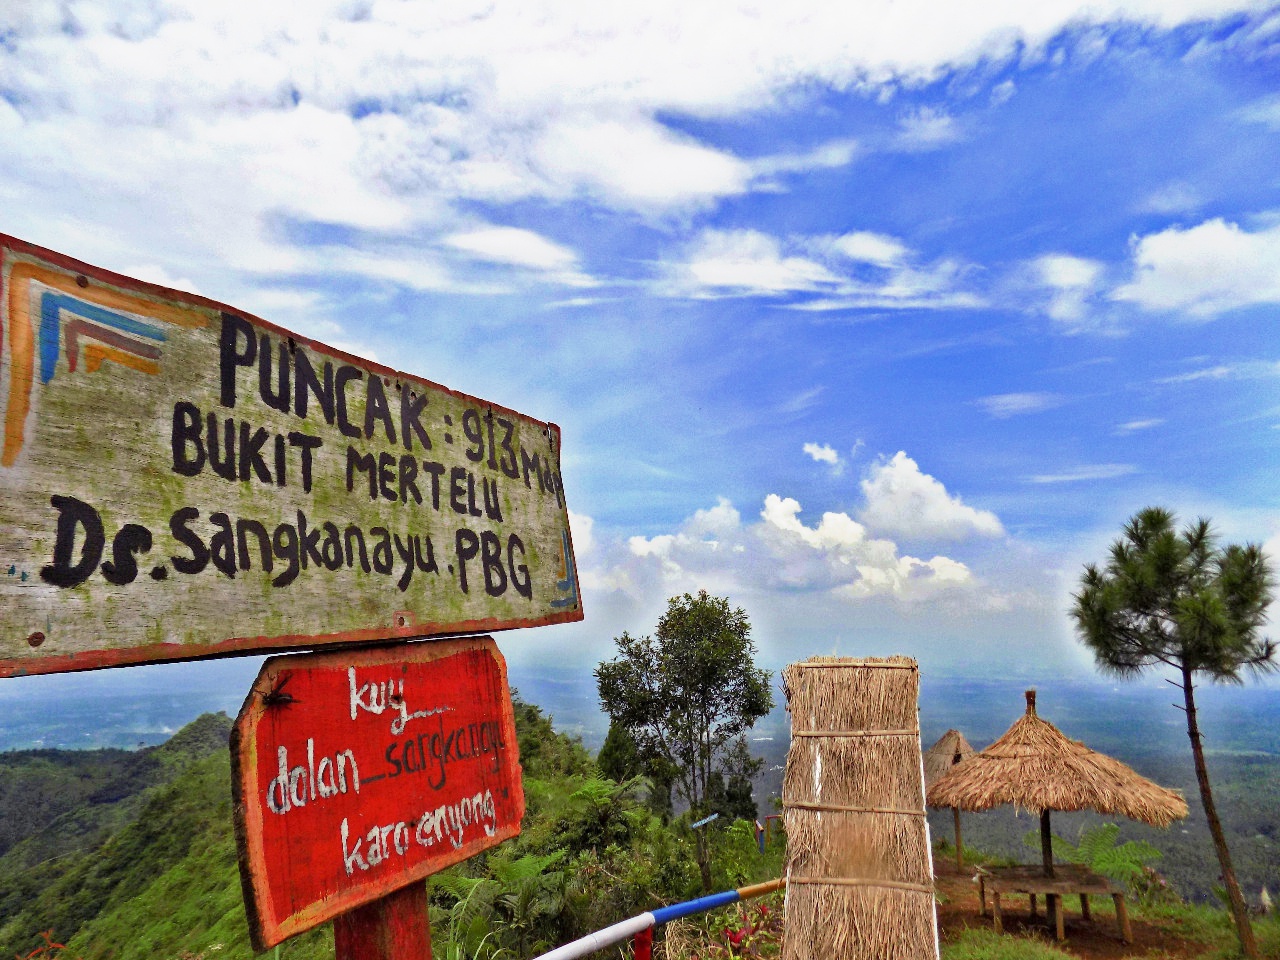 PUNCAK : 913 Mdp
BUKIT MERTELU
Ds. Sangkanayu. PBG
kuy
dolan_sangkanayu
karo enyong